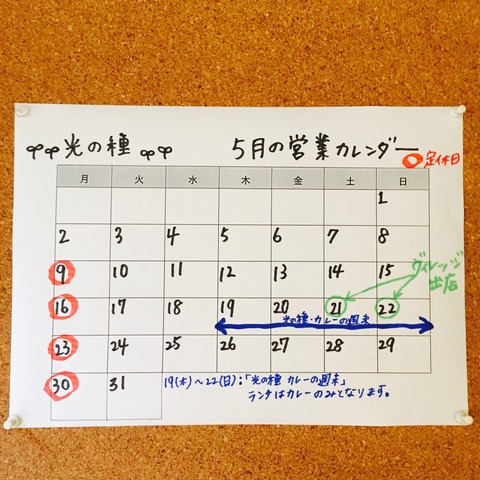 光の種 5月の営業カレンダー
定休日
月 火 水 木 金 土 日
1
2 3 4 5 6 7 8
9 10 11 12 13 14 15
ヴィレッジ
出店
16 17 18 19 20 21 22
光の種・カレーの週末
23 24 25 26 27 28 29
30 31
19(木)〜22(日);「光の種 カレーの週末」
ランチはカレーのみとなります。